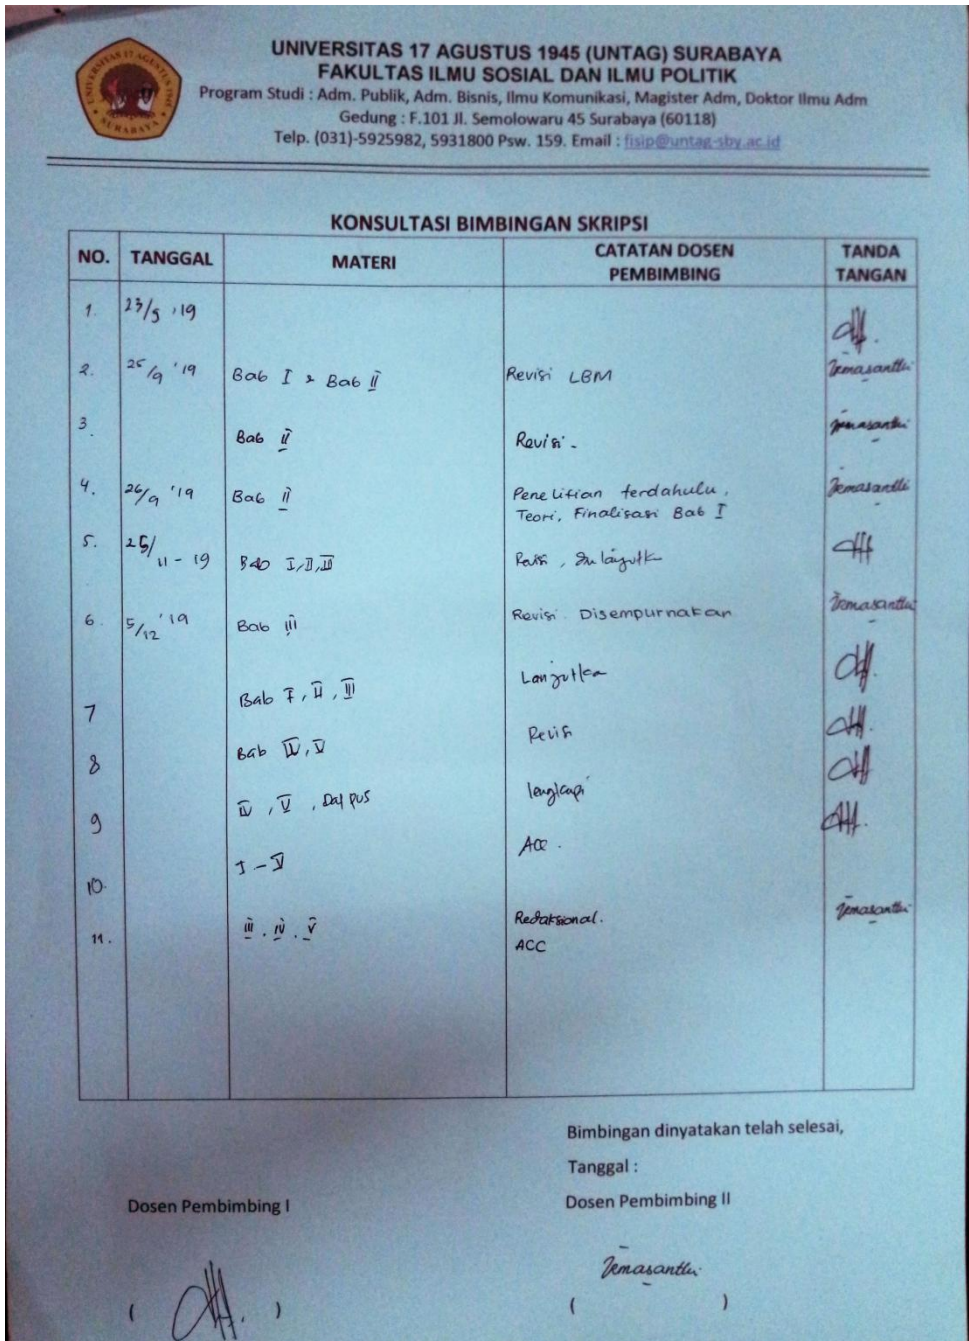 UNIVERSITAS 17 AGUSTUS 1945
SURABAYA
UNIVERSITAS 17 AGUSTUS 1945 (UNTAG) SURABAYA
FAKULTAS ILMU SOSIAL DAN ILMU POLITIK
Program Studi : Adm. Publik, Adm. Bisnis, Ilmu Komunikasi, Magister Adm, Doktor Ilmu Adm
Gedung : F.101 Jl. Semolowaru 45 Surabaya (60118)
Telp. (031)-5925982, 5931800 Psw. 159. Email : fisip@untag-sby.ac.id
KONSULTASI BIMBINGAN SKRIPSI
NO. TANGGAL MATERI CATATAN DOSEN PEMBIMBING TANDA TANGAN
1. 23/9 '19
2. 25/9 '19 Bab I & Bab II Revisi LBM
3. Bab II Revisi -
4. 26/9 '19 Bab II Penelitian terdahulu,
Teori, Finalisasi Bab I
5. 25/11 - 19 Bab I, II, III
6. 5/12 '19 Bab III Revisi Disempurnakan
7 Bab I, II, III Lanjutka
8 Bab IV, V Revisi
9 IV, V, Daf pus lengkapi
10. I - V ACC.
11. III. IV. V Redaksional.
ACC
Bimbingan dinyatakan telah selesai,
Tanggal :
Dosen Pembimbing I Dosen Pembimbing II
( ) ( )